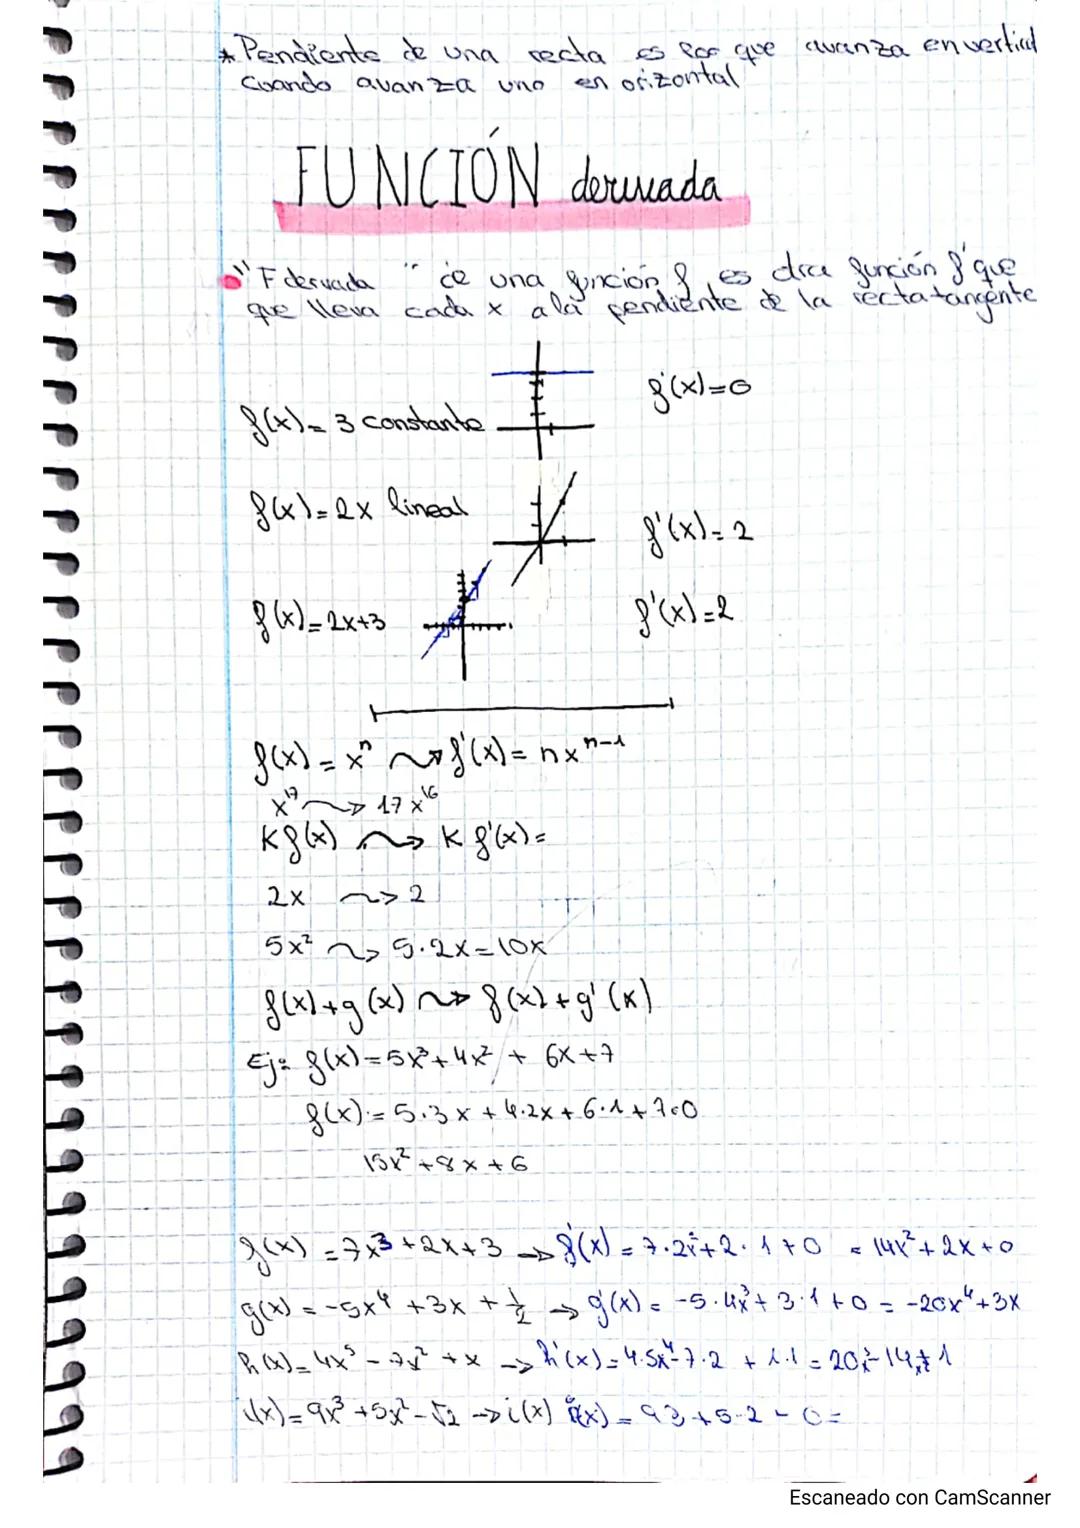 * Pendiente de una recta es que avanza en vertical
Cuando avanza uno en orizontal
FUNCIÓN derivada
"F derivada" de una función f es otra función f' que
que lleva cada x a la pendiente de la recta tangente
f'(x)=0
f(x)= 3 constante
f(x)=2x lineal
f'(x)=2
f(x)=2x+3
f'(x)=2
f(x) = xⁿ ⇝ f'(x) = n xⁿ⁻¹
x¹⁷ → 17 x¹⁶
K f(x) ⇝ K f'(x) =
2x ⇝ 2
5x² ⇝ 5·2x=10x
f(x)+g(x) ⇝ f(x)+g'(x)
Ej: f(x)=5x³+4x² + 6x+7
f(x)= 5·3x + 4·2x + 6·1 + 7·0
15x² + 8x + 6
f(x) = 7x³ + 2x + 3 → f'(x) = 7·2x²+2·1+0 = 14x²+2x+0
g(x) = -5x⁴ + 3x + 1/2 → g'(x) = -5·4x³+3·1+0 = -20x⁴+3x
h(x)=4x⁵ - 7x² + x → h'(x)=4·5x⁴-7·2 + 1·1 = 20x³-14x+1
i(x)=9x³+5x²-√2 → i(x) i'(x) = 9 3 + 5·2 - 0 =
Escaneado con CamScanner